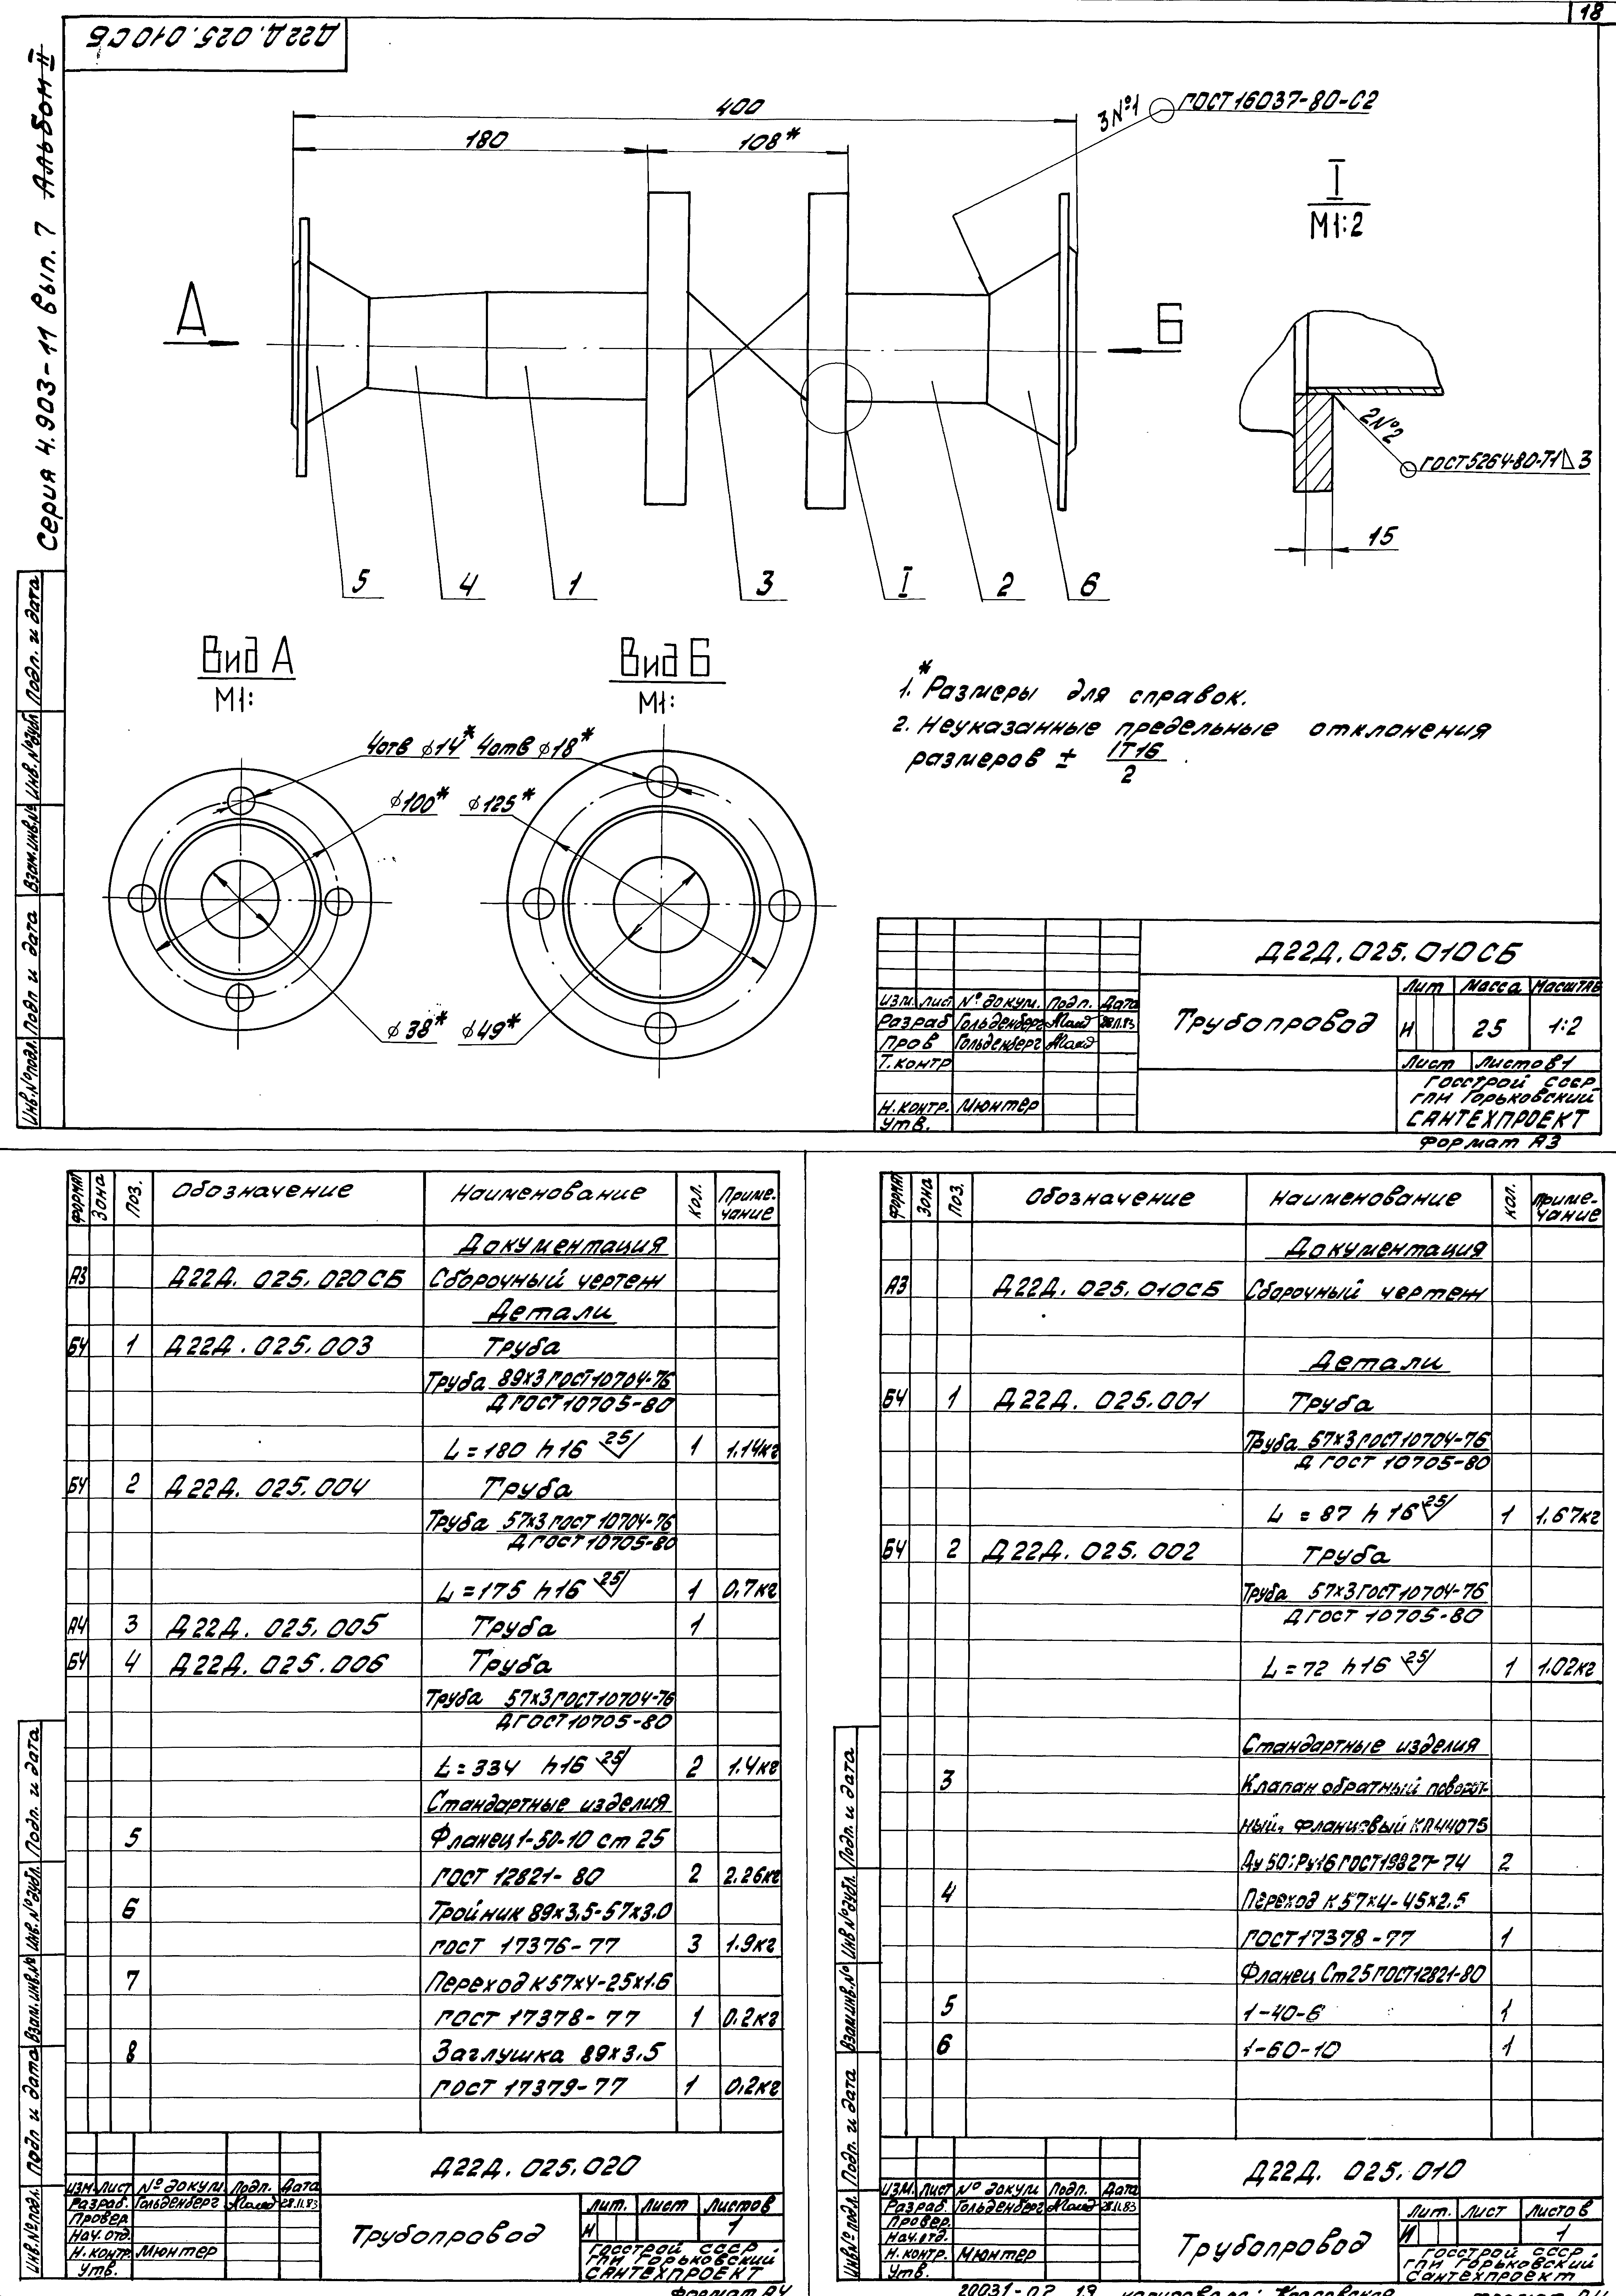 18
Д22Д.025.010СБ
Серия 4.903-11 Вып. 7 Альбом II
400
180
108*
3№1
ГОСТ 16037-80-С2
I
М1:2
А
Б
2№2
ГОСТ 5264-80-Т1 ⊿ 3
15
5
4
1
3
I
2
6
Вид А
М1:
Вид Б
М1:
4отв ⌀14*
4отв ⌀18*
⌀100*
⌀125*
⌀38*
⌀49*
1.* Размеры для справок.
2. Неуказанные предельные отклонения
размеров ± IT16/2.
Инв.№подл. Подп и дата Взам.инв.№ Инв.№дубл. Подп. и дата
Д22Д.025.010СБ
Изм. Лист № докум. Подп. Дата
Разраб Гольденберг 28.11.83
Пров Гольденберг
Т.контр
Н.контр. Мюнтер
Утв.
Трубопровод
Лит Масса Масштаб
И 25 1:2
Лист Листов 1
Госстрой СССР
ГПИ Горьковский
САНТЕХПРОЕКТ
Формат А3
Формат Зона Поз. Обозначение Наименование Кол. Приме-
чание
Документация
А3 Д22Д. 025. 020СБ Сборочный чертеж
Детали
БЧ 1 Д22Д. 025. 003 Труба
Труба 89х3 ГОСТ 10704-76
Д ГОСТ 10705-80
L = 180 h16 25/ 1 1.14кг
БЧ 2 Д22Д. 025. 004 Труба
Труба 57х3 ГОСТ 10704-76
Д ГОСТ 10705-80
L = 175 h16 25/ 1 0,7кг
А4 3 Д22Д. 025. 005 Труба 1
БЧ 4 Д22Д. 025. 006 Труба
Труба 57х3 ГОСТ 10704-76
Д ГОСТ 10705-80
L = 334 h16 25/ 2 1.4кг
Стандартные изделия
5 Фланец 1-50-10 ст 25
ГОСТ 12821-80 2 2.26кг
6 Тройник 89х3,5-57х3.0
ГОСТ 17376-77 3 1.9кг
7 Переход К57х4-25х1.6
ГОСТ 17378-77 1 0.2кг
8 Заглушка 89х3.5
ГОСТ 17379-77 1 0,2кг
Инв.№подл. Подп и дата Взам.инв.№ Инв.№дубл. Подп. и дата
Д22Д. 025. 020
Изм Лист № докум Подп. Дата
Разраб. Гольденберг 28.11.83
Провер
Нач.отд.
Н.контр. Мюнтер
Утв.
Трубопровод
Лит. Лист Листов
И 1
Госстрой СССР
ГПИ Горьковский
САНТЕХПРОЕКТ
Формат А4
Формат Зона Поз. Обозначение Наименование Кол. Приме-
чание
Документация
А3 Д22Д. 025. 010СБ Сборочный чертеж
Детали
БЧ 1 Д22Д. 025.001 Труба
Труба 57х3 ГОСТ 10704-76
Д ГОСТ 10705-80
L = 87 h16 25/ 1 1,67кг
БЧ 2 Д22Д. 025. 002 Труба
Труба 57х3 ГОСТ 10704-76
Д ГОСТ 10705-80
L = 72 h16 25/ 1 1.02кг
Стандартные изделия
3 Клапан обратный поворот-
ный, фланцевый КА44075
Ду 50; Ру16 ГОСТ 19827-74 2
4 Переход К57х4-45х2.5
ГОСТ 17378-77 1
Фланец Ст25 ГОСТ 12821-80
5 1-40-6 1
6 1-60-10 1
Инв.№подл. Подп. и дата Взам.инв.№ Инв.№дубл. Подп. и дата
Д22Д. 025. 010
Изм. Лист № докум Подп. Дата
Разраб. Гольденберг 28.11.83
Провер.
Нач.отд.
Н.контр. Мюнтер
Утв.
Трубопровод
Лит. Лист Листов
И 1
Госстрой СССР
ГПИ Горьковский
Сантехпроект
20031-02 19